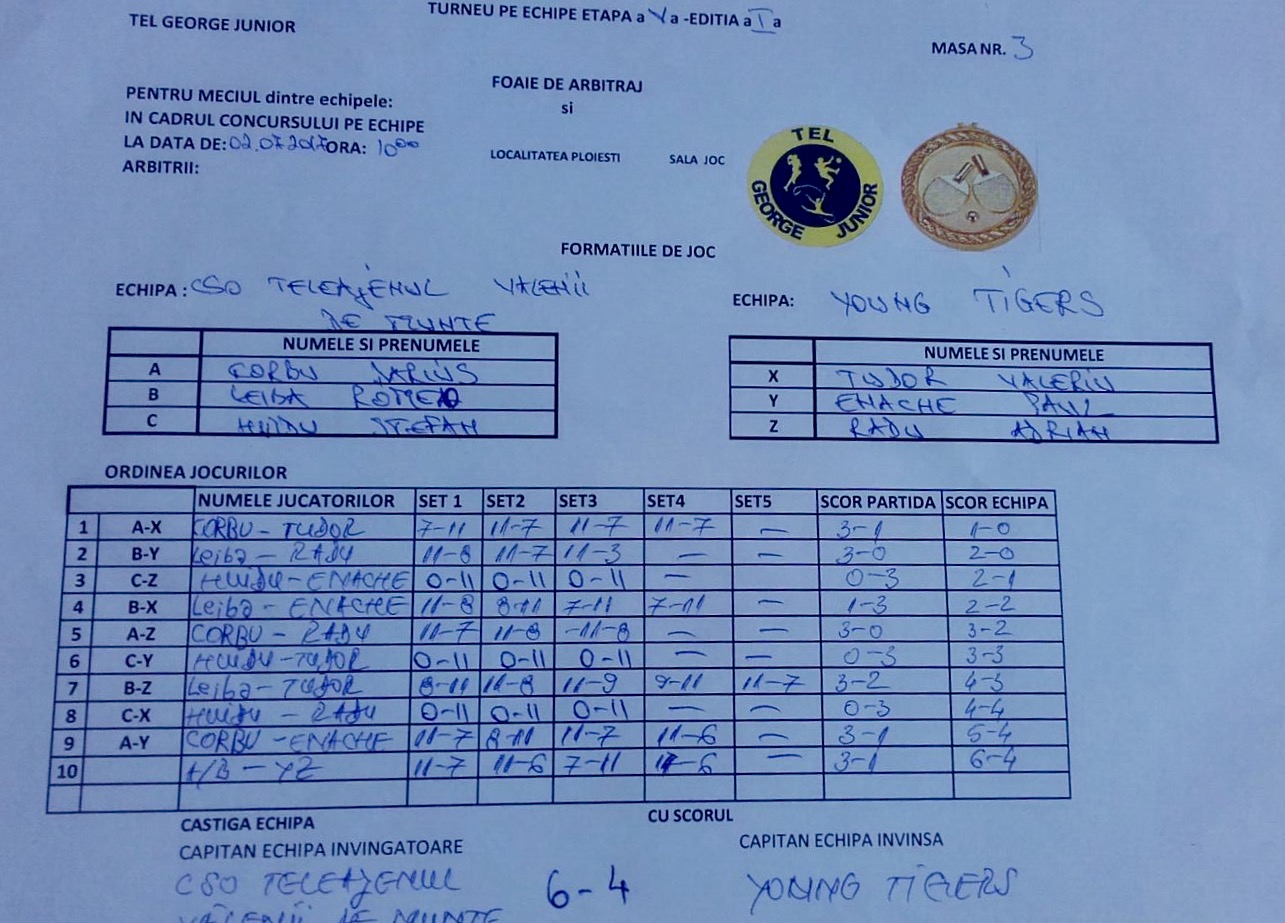 TEL GEORGE JUNIOR
TURNEU PE ECHIPE ETAPA a V a -EDITIA a I a
MASA NR. 3
FOAIE DE ARBITRAJ
si
PENTRU MECIUL dintre echipele:
IN CADRUL CONCURSULUI PE ECHIPE
LA DATA DE: 02.07.2017 ORA: 10⁰⁰
ARBITRII:
LOCALITATEA PLOIESTI SALA JOC
TEL GEORGE JUNIOR
FORMATIILE DE JOC
ECHIPA: CSO TELEAJENUL VALENII
DE MUNTE
NUMELE SI PRENUMELE
A CORBU DARIUS
B LEIBA ROMEO
C HUIDU STEFAN
ECHIPA: YOUNG TIGERS
NUMELE SI PRENUMELE
X TUDOR VALERIU
Y ENACHE PAUL
Z RADU ADRIAN
ORDINEA JOCURILOR
NUMELE JUCATORILOR SET 1 SET2 SET3 SET4 SET5 SCOR PARTIDA SCOR ECHIPA
1 A-X CORBU - TUDOR 7-11 11-7 11-7 11-7 — 3-1 1-0
2 B-Y Leiba - RADU 11-8 11-7 11-3 — — 3-0 2-0
3 C-Z HUIDU - ENACHE 0-11 0-11 0-11 — 0-3 2-1
4 B-X Leiba - ENACHE 11-8 8-11 7-11 7-11 — 1-3 2-2
5 A-Z CORBU - RADU 11-7 11-8 -11-8 — — 3-0 3-2
6 C-Y HUIDU - TUDOR 0-11 0-11 0-11 — — 0-3 3-3
7 B-Z Leiba - TUDOR 8-11 11-8 11-9 9-11 11-7 3-2 4-3
8 C-X HUIDU - RADU 0-11 0-11 0-11 — — 0-3 4-4
9 A-Y CORBU - ENACHE 11-7 8-11 11-7 11-6 — 3-1 5-4
10 A/B - YZ 11-7 11-6 7-11 11-6 — 3-1 6-4
CASTIGA ECHIPA CU SCORUL
CAPITAN ECHIPA INVINGATOARE CAPITAN ECHIPA INVINSA
CSO TELEAJENUL 6-4 YOUNG TIGERS
VALENII DE MUNTE